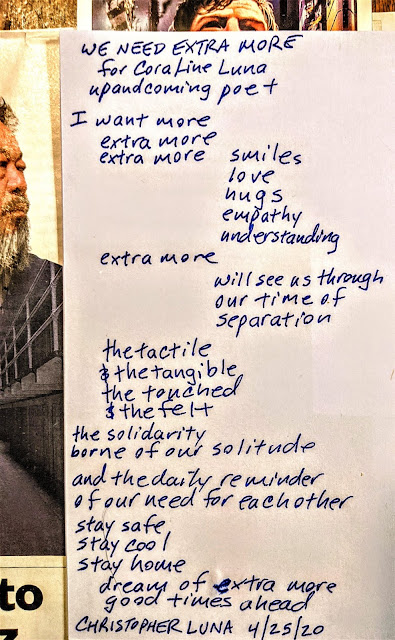 WE NEED EXTRA MORE
for Coraline Luna
upandcoming poet
I want more
extra more
extra more smiles
love
hugs
empathy
understanding
extra more
will see us through
our time of
separation
the tactile
& the tangible
the touched
& the felt
the solidarity
borne of our solitude
and the daily reminder
of our need for each other
stay safe
stay cool
stay home
dream of extra more
good times ahead
CHRISTOPHER LUNA 4/25/20
to